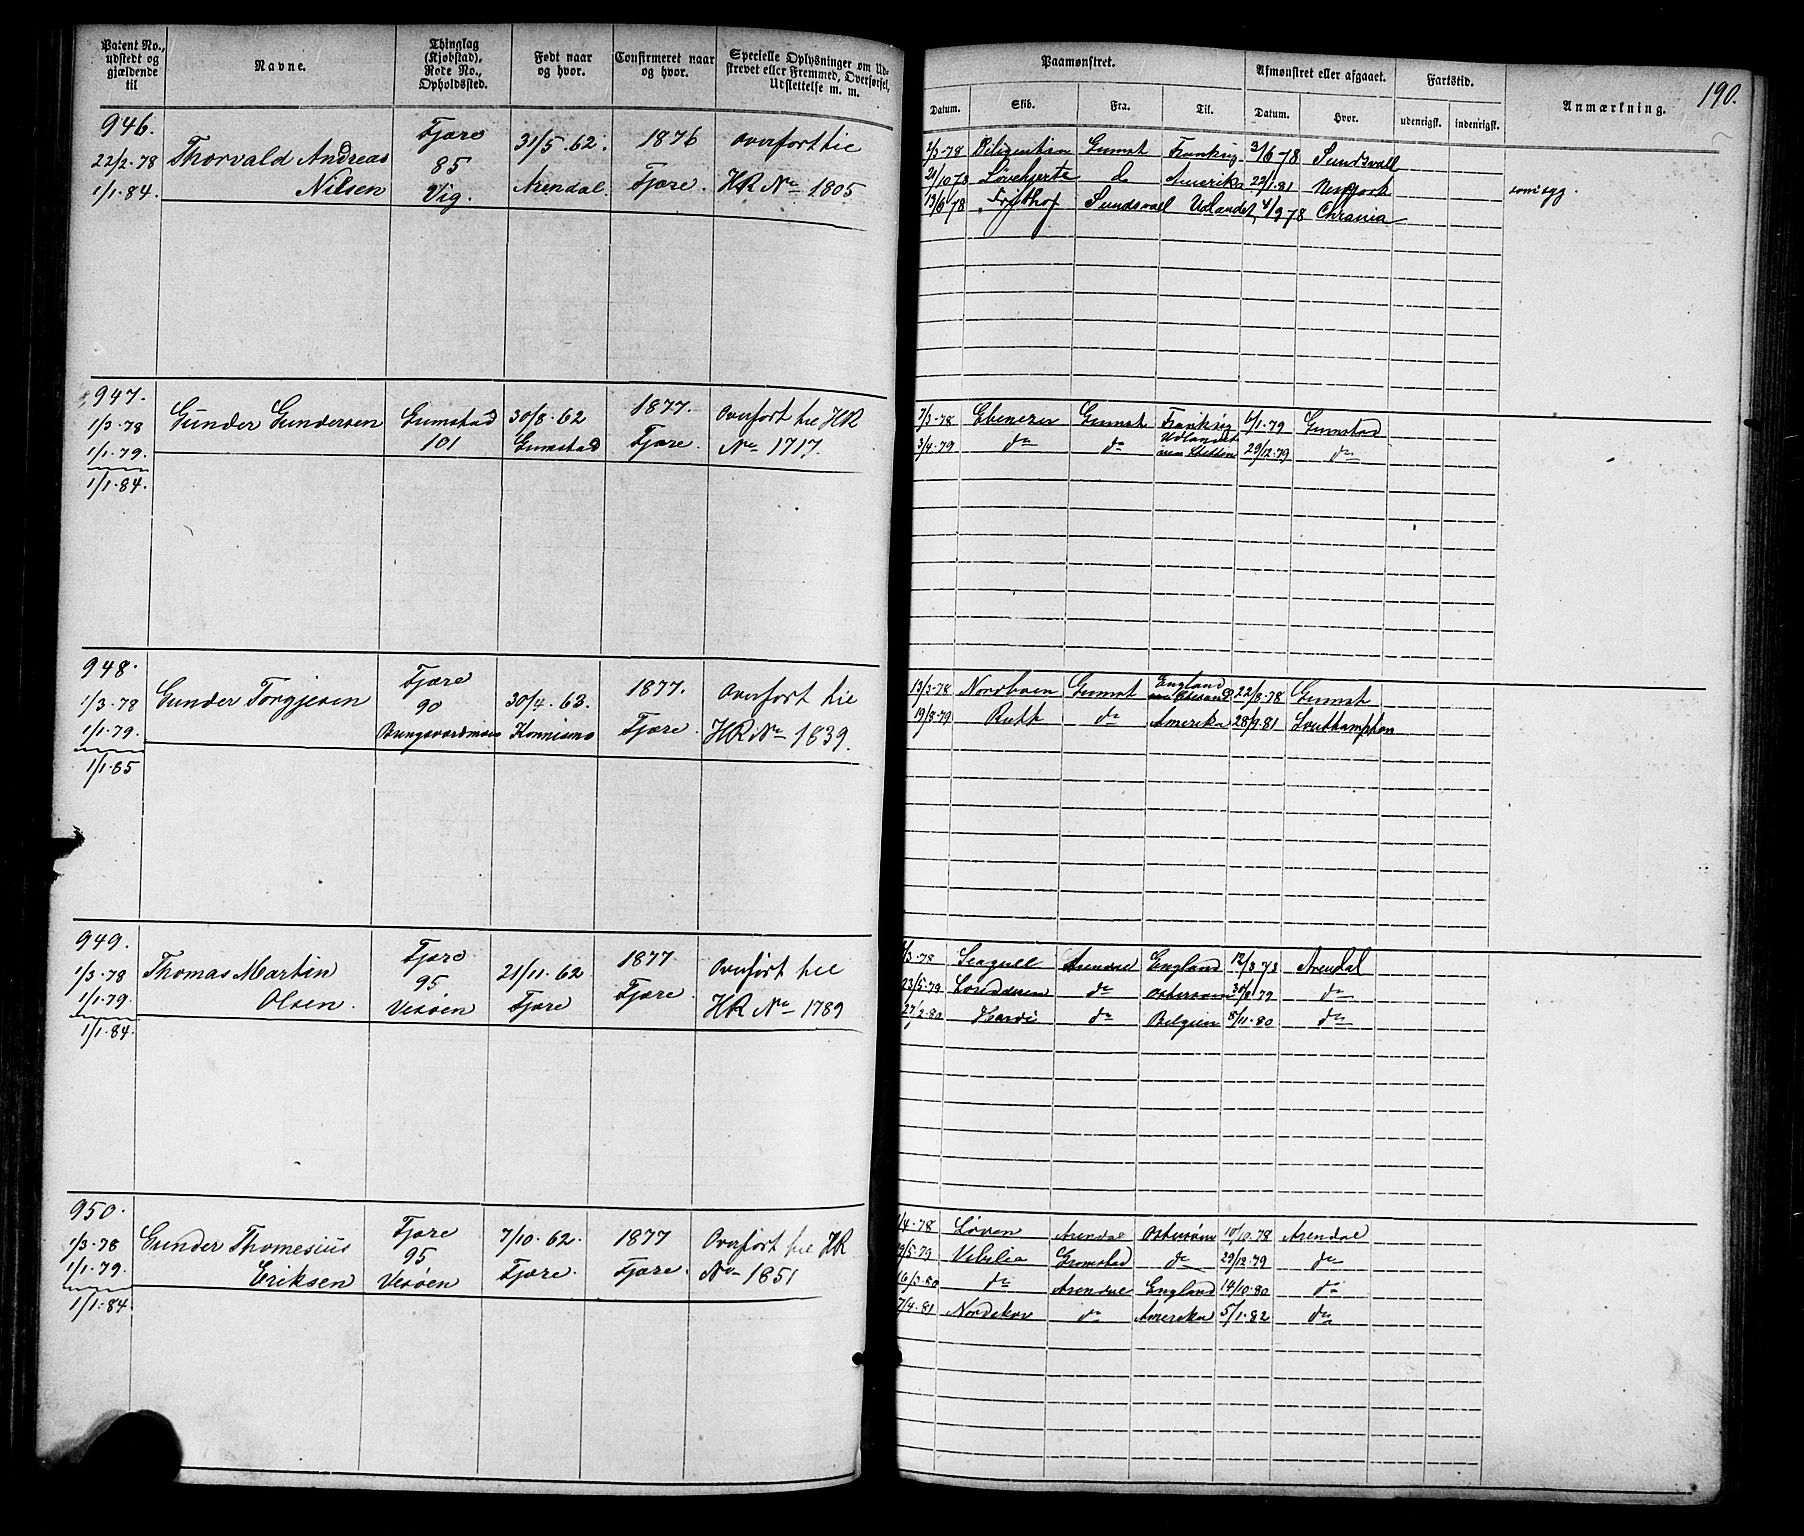 Patent No., udstedt og gjældende til
Navne.
Thinglag (Kjøbstad), Rode No., Opholdssted.
Født naar og hvor.
Confirmeret naar og hvor.
Specielle Oplysninger om Udskrevet eller Fremmed, Overførsel, Udslettelse m. m.
Paamønstret.
Afmønstret eller afgaaet.
Fartstid.
Anmærkning.
190.
Datum. Skib. Fra. Til. Datum. Hvor. udenrigsk. indenrigsk.
946.
22/2·78
1/1·84.
Thorvald Andreas
Nilsen
Fjære
85
Vig.
31/5·62.
Arendal.
1876
Fjære.
Overført til
HR No 1805
1/3·78 Grimst Frankrig 3/6 78 Sundsvall
21/10 78 Løvehjerte do Amerika 22/1·81
13/6 78 Frithof Sundsvall Udlandet 4/9 78 Chrania
947.
1/3·78
1/1·79.
1/1·84.
Gunder Gundersen
Grimstad
101
30/8·62
Grimstad
1877.
Fjære.
Overført til HR
No 1717.
7/3·78 Ebenezer Grimst Frankrig 6/1·79 Grimstad
3/4·79 do do Udlandet
via Stettin 29/12·79 do
948.
1/3·78
1/1·79.
1/1·85
Gunder Torgjesen
Fjære
90
30/4·63.
1877.
Fjære.
Overført til
HR No 1839.
13/3·78 Nordboen Grimst England 22/8·78 Grimst
19/8·79 Ruth do Amerika 28/9·81 Southampton
949.
1/3·78
1/1·79.
1/1·84.
Thomas Martin
Olsen.
Fjære
95
Vesøen
21/11·62
Fjære
1877
Fjære.
Overført til
HR No 1789
/3·78 Seagull Arendal England 12/8·78 Arendal
23/5·79 do Østersøen 30/8 79 do
27/2·80 do Belgien 8/11·80 do
950.
1/3·78
1/1·79.
1/1·84.
Gunder Thomesius
Eriksen
Fjære
95
Vesøen
7/10·62.
Fjære.
1877
Fjære.
Overført til HR
No 1851
/4·78 Løven Arendal Østersøen 10/10·78 Arendal
/5·79 Vibilia Grimstad do 29/12·79 do
16/3·80 do Arendal England 14/10·80 do
7/4·81 do Amerika 5/1·82 do